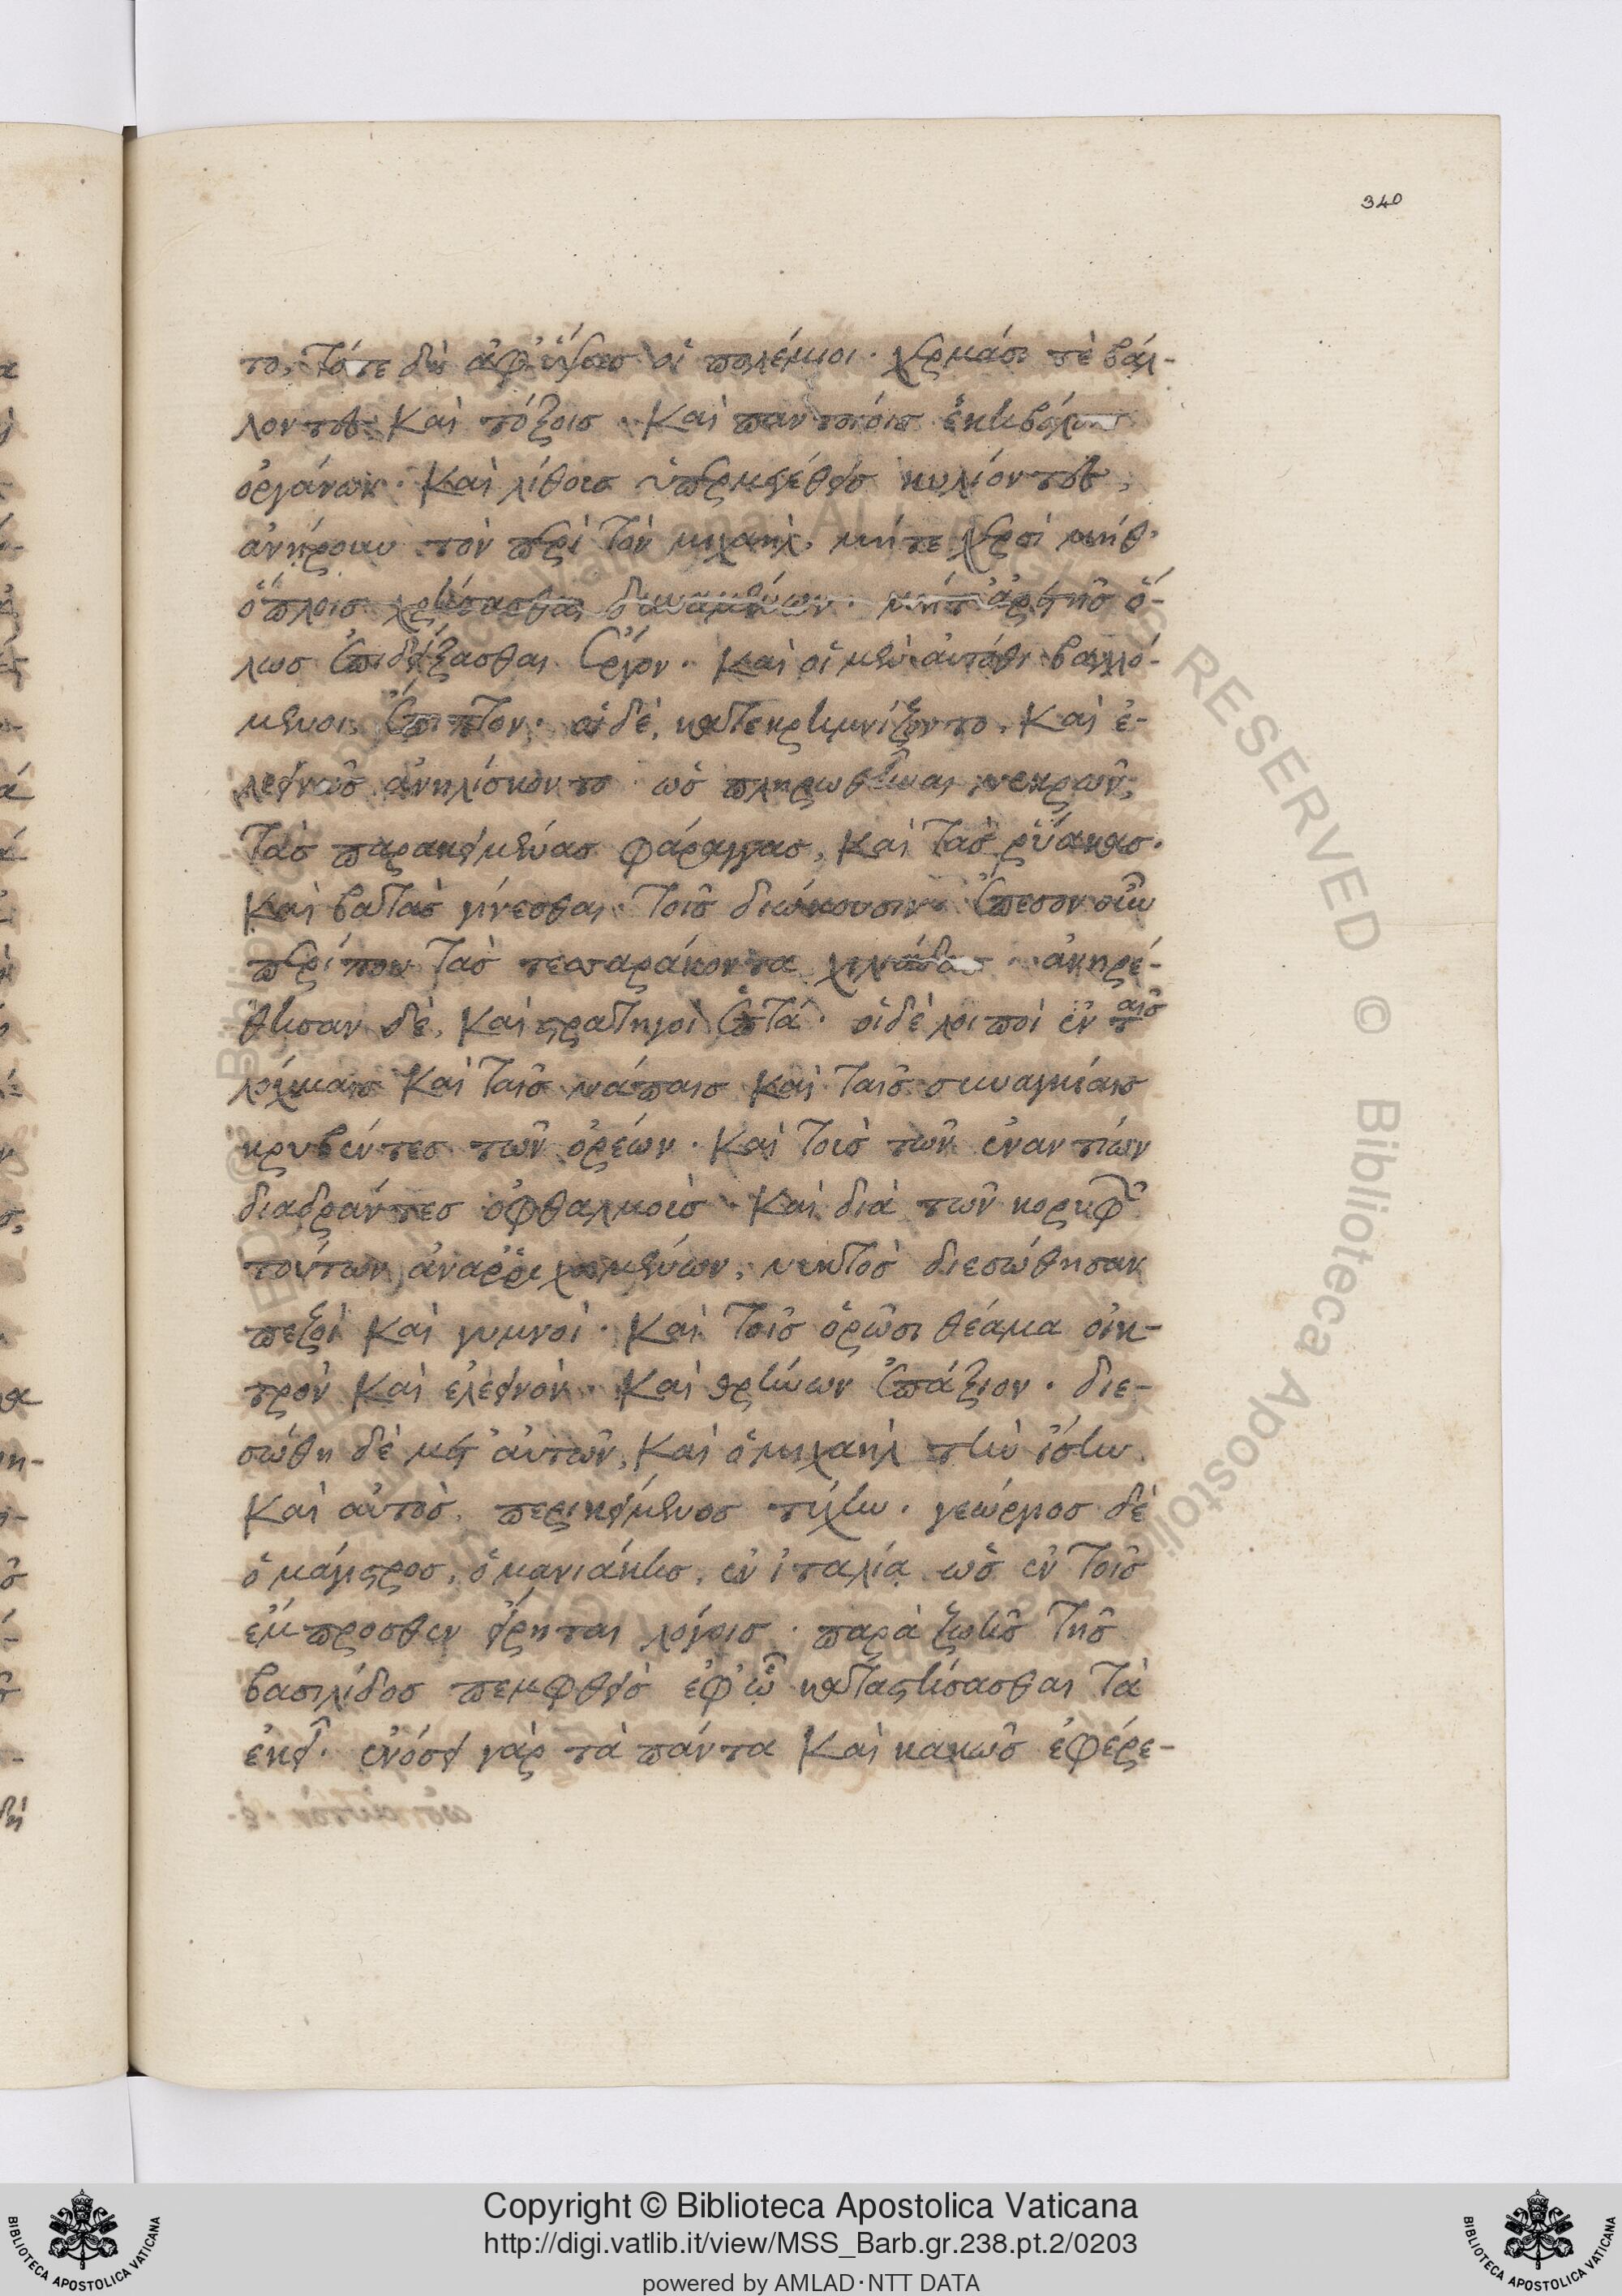 340
το, τότε δὴ ἀφ' ὕψους οἱ πολέμιοι · χερμάσι τὲ βάλ-
λοντες καὶ τόξοις · καὶ παντοίοις ἑκηβόλοις
ὀργάνοις · καὶ λίθους ὑπερμεγέθεις κυλίοντες,
ἀνήρουν τὸν περὶ τὸν μιχαὴλ, μήτε χερσὶ μήθ'
ὅπλοις χρήσασθαι δυναμένων · μήτ' ἀρετῆς ὅ-
λως ἐπιδείξασθαι ἔργον · καὶ οἱ μὲν αὐτόθι βαλλό-
μενοι ἔπιπτον · οἱ δὲ, κατεκρημνίζοντο, καὶ ἐ-
λεεινῶς ἀνηλίσκοντο · ὡς πληρωθῆναι νεκρῶν,
τὰς παρακειμένας φάραγγας, καὶ τὰς ῥύακας ·
καὶ βατὰς γίνεσθαι τοῖς διώκουσιν · ἔπεσον οὖν
περί που τὰς τεσσαράκοντα χιλιάδας · ἀνηρέ-
θησαν δὲ, καὶ στρατηγοὶ ἑπτά · οἱ δὲ λοιποὶ ἐν ταῖς
λόχμαις καὶ ταῖς νάπαις καὶ ταῖς συναγκείαις
κρυβέντες τῶν ὀρέων · καὶ τοὺς τῶν ἐναντίων
διαδράντες ὀφθαλμοὺς · καὶ διὰ τῶν κορυφῶν
τούτων ἀναρριχομένων, νυκτὸς διεσώθησαν
πεζοὶ καὶ γυμνοὶ · καὶ τοῖς ὁρῶσι θέαμα οἰκ-
τρὸν καὶ ἐλεεινὸν · καὶ θρήνων ἐπάξιον · διε-
σώθη δὲ μετ' αὐτῶν, καὶ ὁ μιχαὴλ τὴν ἴσην
καὶ αὐτὸς, περικείμενος τύχην · γεώργιος δὲ
ὁ μάγιστρος, ὁ μανιάκης, ἐν ἰταλίᾳ ὡς ἐν τοῖς
ἔμπροσθεν εἴρηται λόγοις · παρὰ ζωῆς τῆς
βασιλίδος πεμφθεὶς ἐφ' ᾧ καταστήσασθαι τὰ
ἐκεῖ · ἐνόσει γὰρ τὰ πάντα καὶ κακῶς ἐφέρε-
Copyright © Biblioteca Apostolica Vaticana
http://digi.vatlib.it/view/MSS_Barb.gr.238.pt.2/0203
powered by AMLAD·NTT DATA